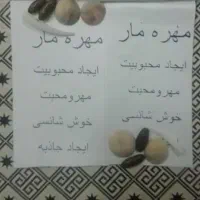 مهره مار
ایجاد محبوبیت
مهرومحبت
خوش شانسی
مهره مار
ایجاد محبوبیت
مهرومحبت
خوش شانسی
ایجاد جاذبه